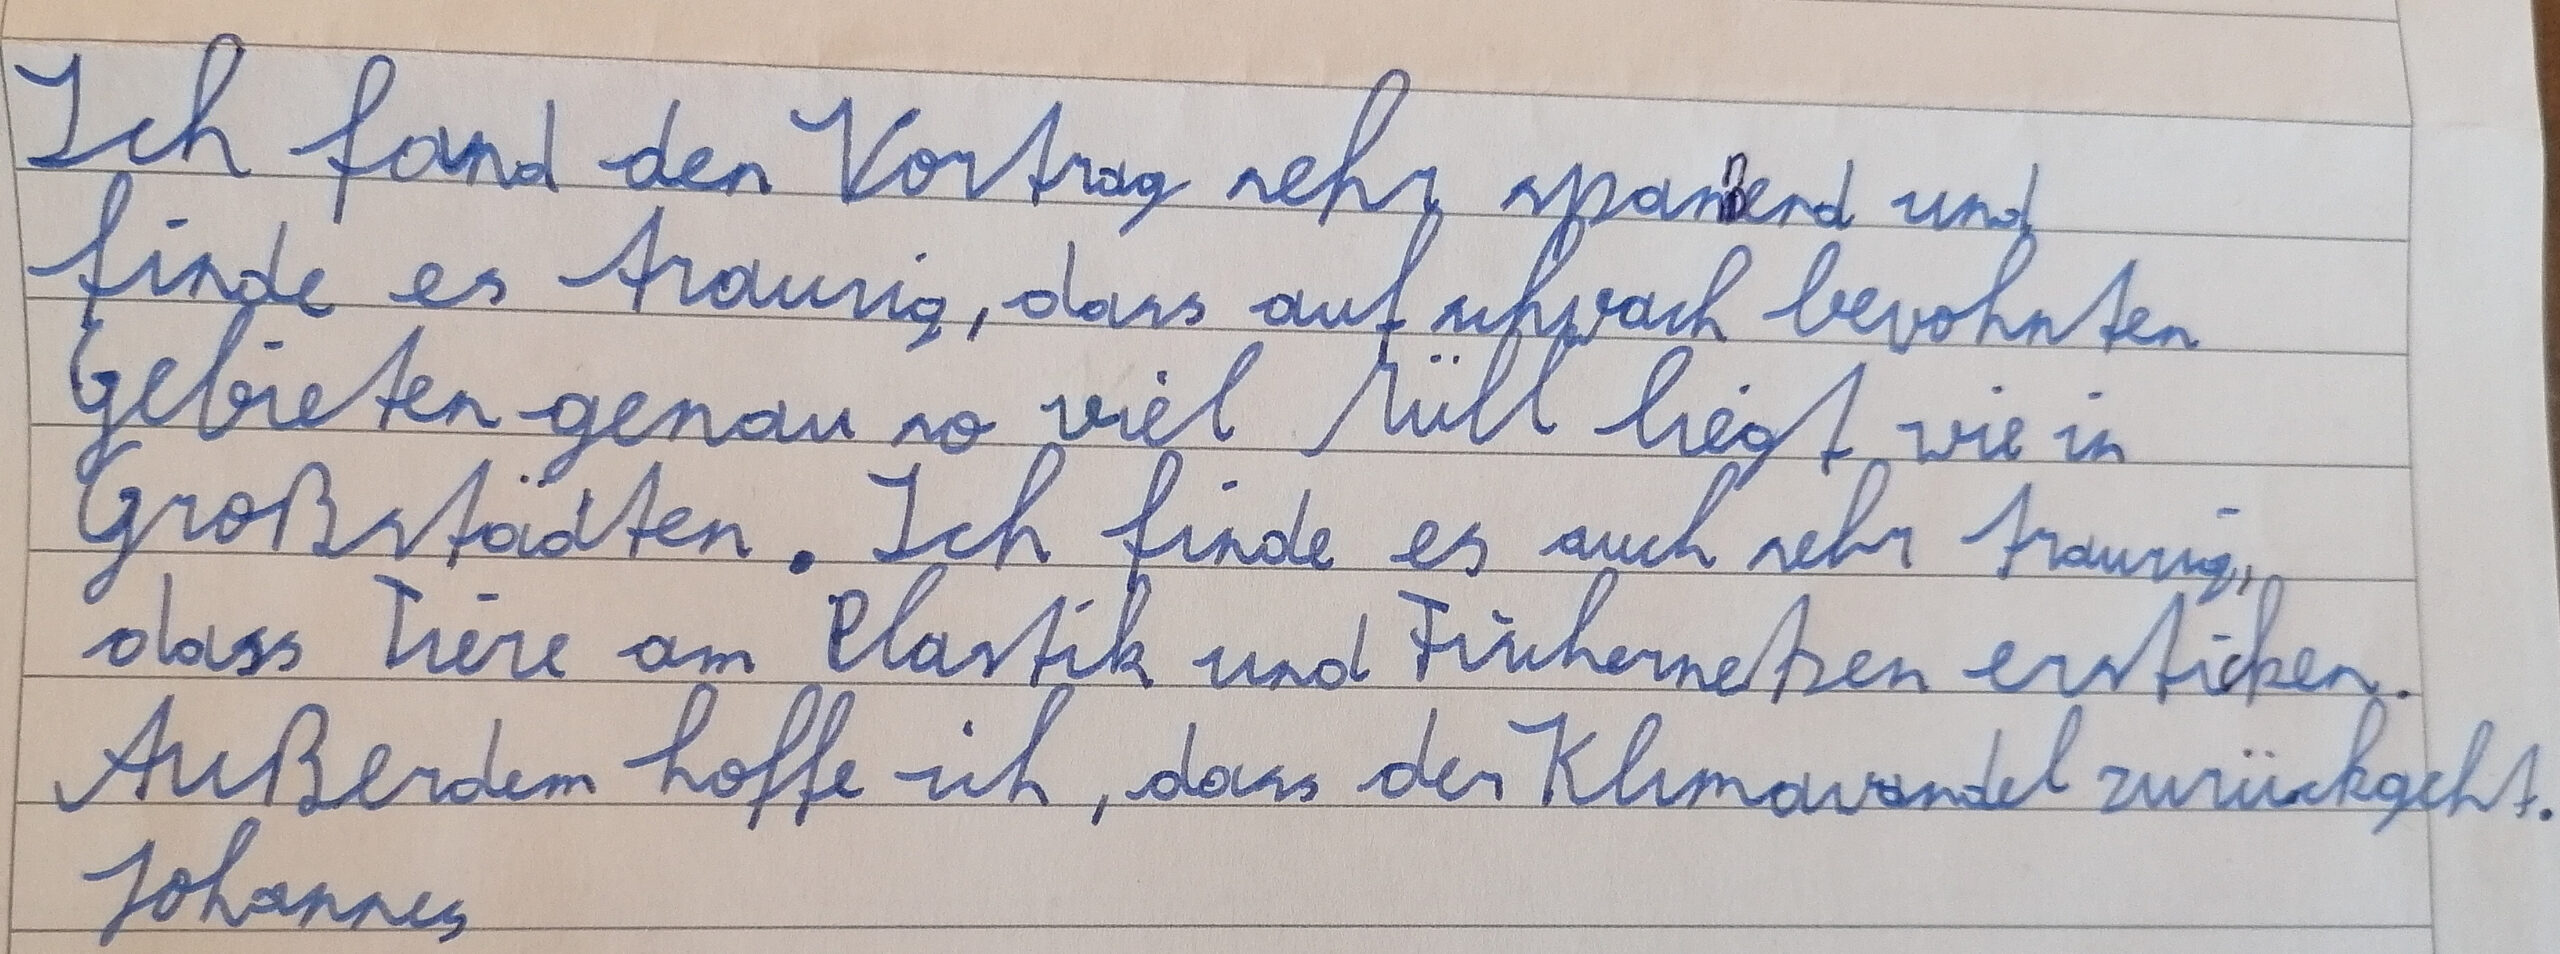 Ich fand den Vortrag sehr spannend und
finde es traurig, dass auf schwach bewohnten
Gebieten genau so viel Müll liegt wie in
Großstädten. Ich finde es auch sehr traurig,
dass Tiere am Plastik und Fischernetzen ersticken.
Außerdem hoffe ich, dass der Klimawandel zurückgeht.
Johannes